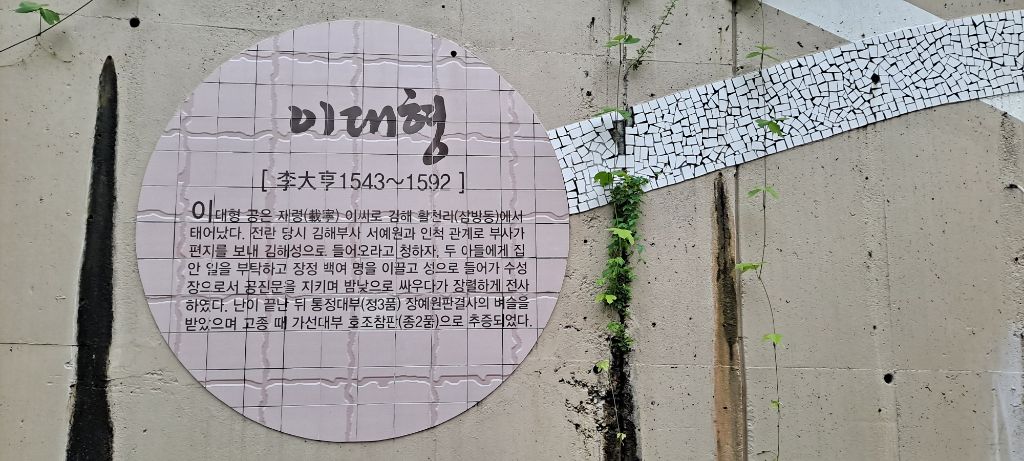 이대형
[ 李大亨1543~1592 ]
이대형 공은 재령(載寧) 이씨로 김해 활천리(삼방동)에서
태어났다. 전란 당시 김해부사 서예원과 인척 관계로 부사가
편지를 보내 김해성으로 들어오라고 청하자, 두 아들에게 집
안 일을 부탁하고 장정 백여 명을 이끌고 성으로 들어가 수성
장으로서 공진문을 지키며 밤낮으로 싸우다가 장렬하게 전사
하였다. 난이 끝난 뒤 통정대부(정3품) 장예원판결사의 벼슬을
받았으며 고종 때 가선대부 호조참판(종2품)으로 추증되었다.